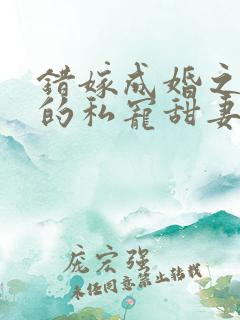 错嫁成婚之
的私宠甜妻
庞宏强
未经同意禁止转载